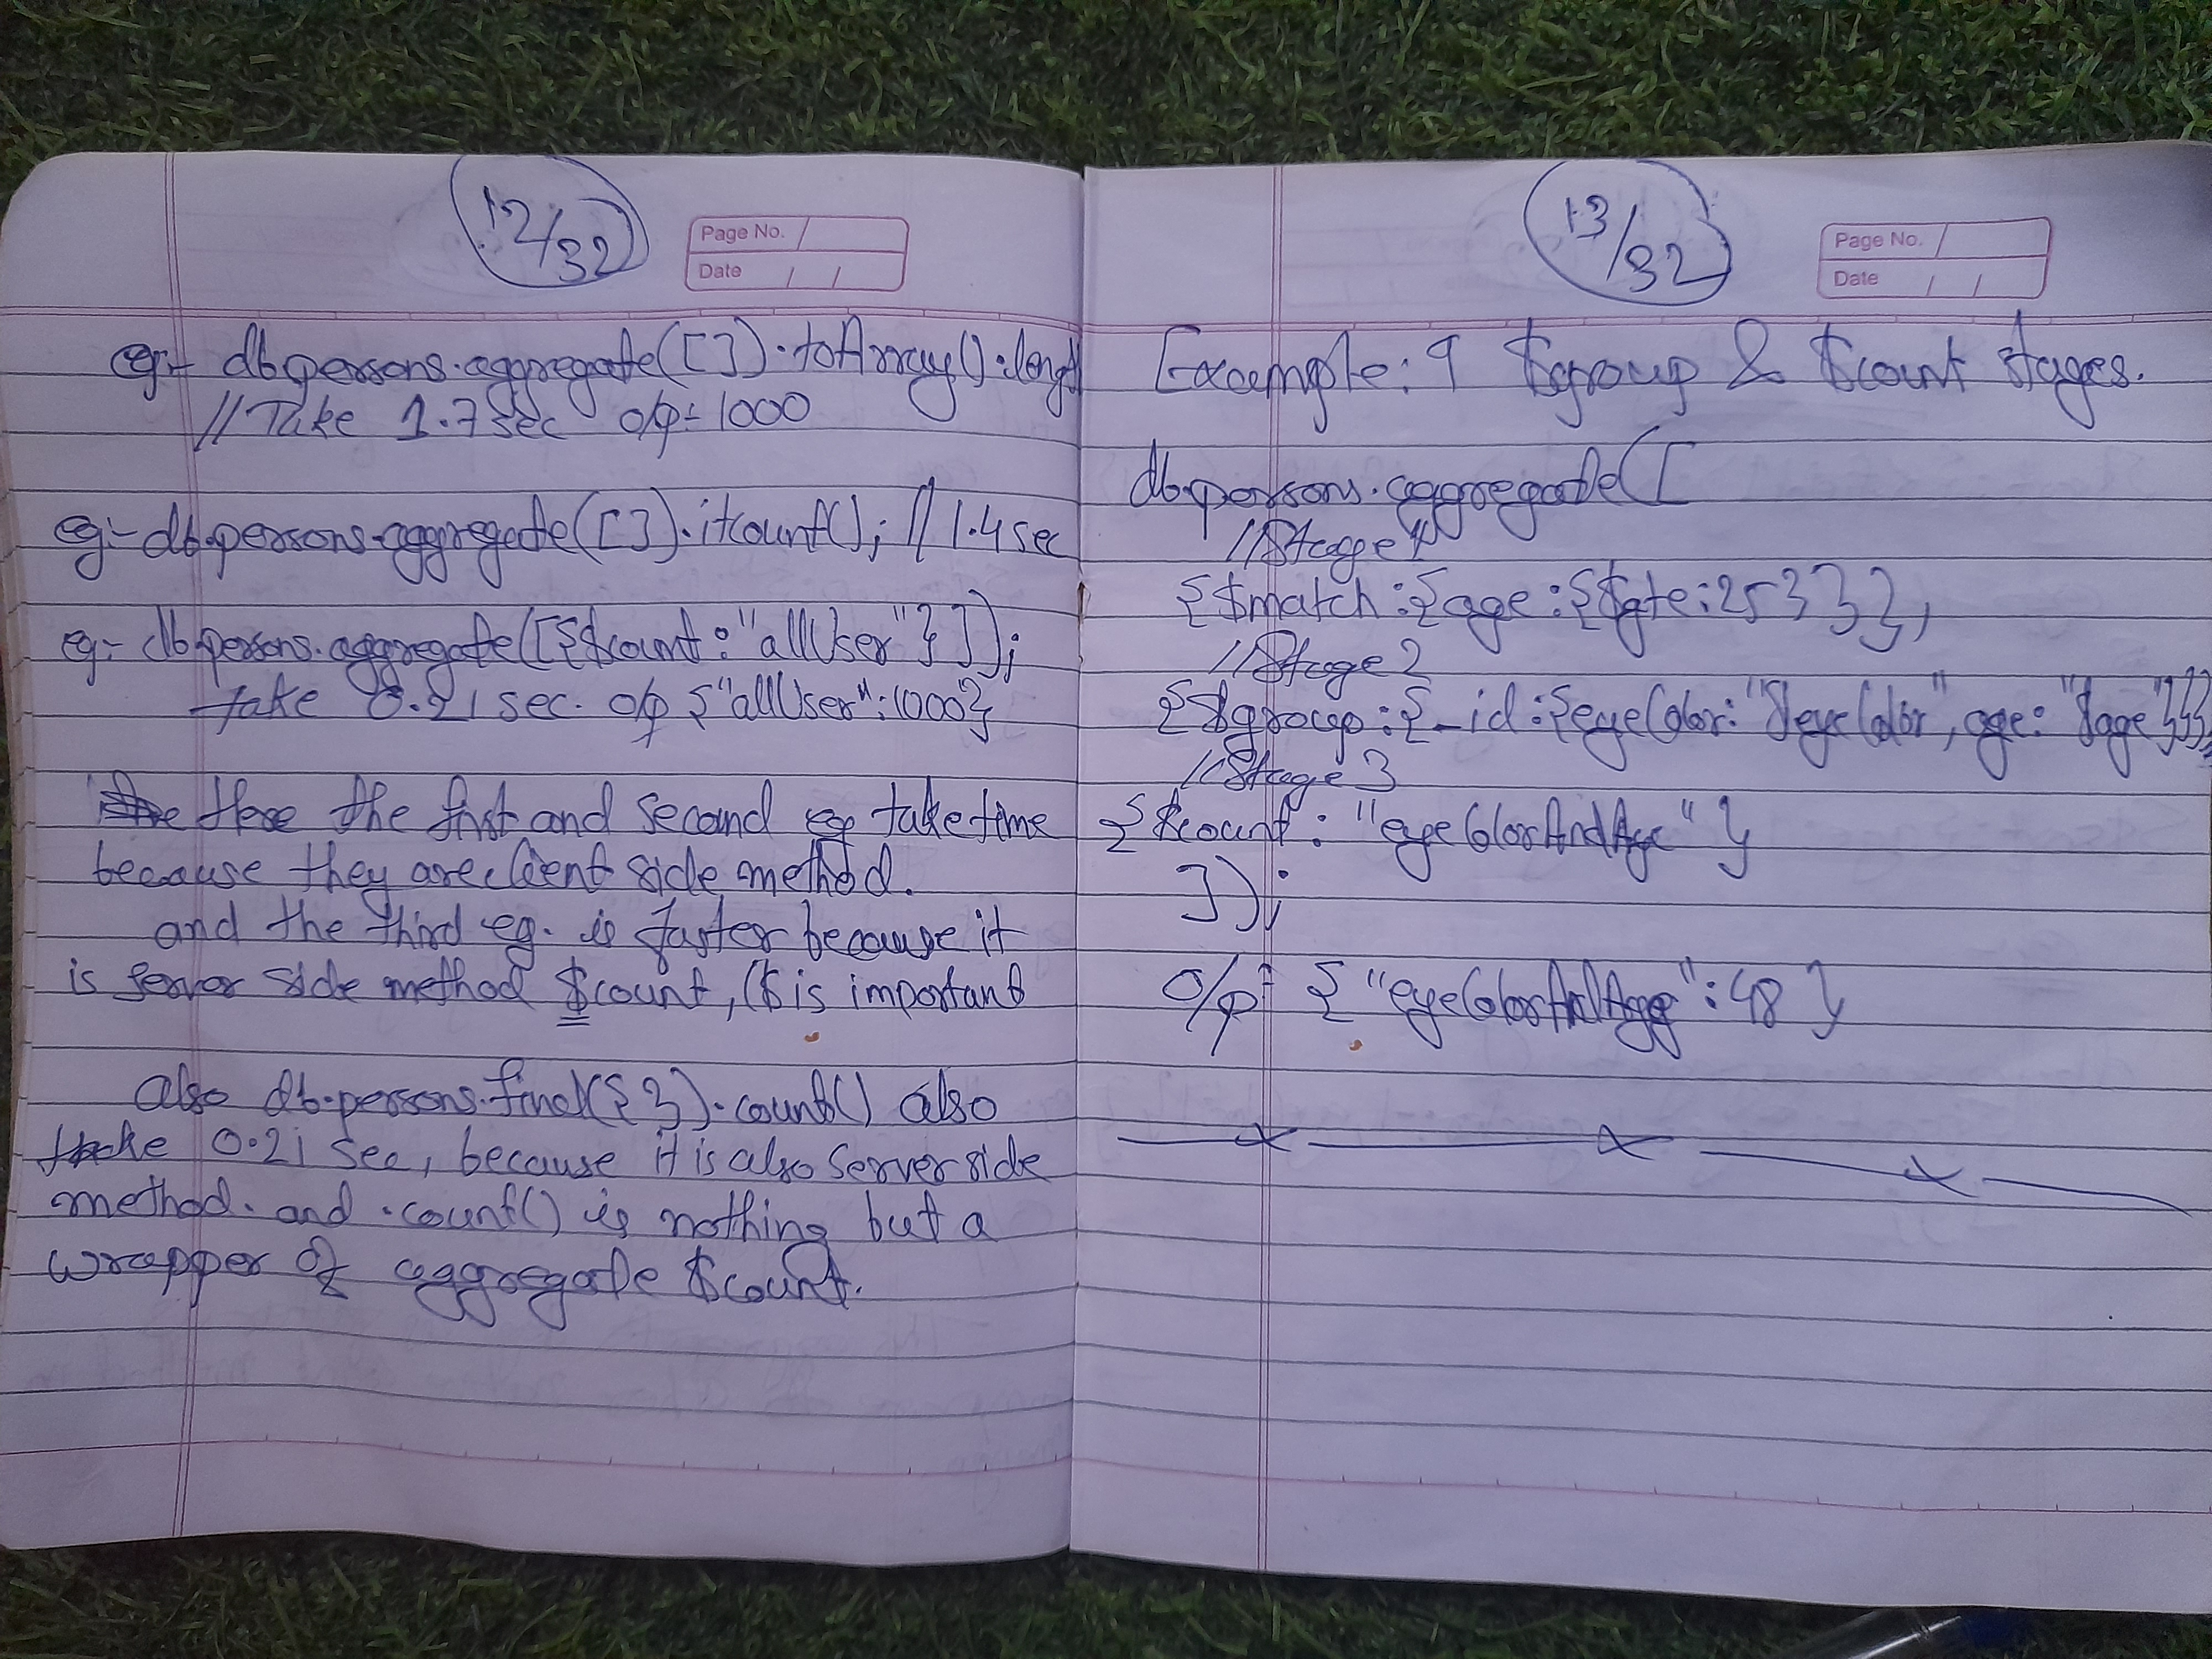 12/32
Page No.
Date / /
eg:- db.persons.aggregate([]).toArray().lengt
//Take 1.7sec o/p:-1000
eg:- db.persons.aggregate([]).itcount(); // 1.4 sec
eg:- db.persons.aggregate([{$count:"allUser"}]);
take 0.21 sec. o/p {"allUser":1000}
Here the first and second eg take time
because they are client side method.
and the third eg. is faster because it
is server side method $count, ($ is important
Also db.persons.find({}).count() also
take 0.21 sec, because it is also server side
method. and .count() is nothing but a
wrapper of aggregate $count.
13/32
Page No.
Date / /
Example: 9 $group & $count stages.
db.persons.aggregate([
//Stage 1
{$match:{age:{$gte:25}}},
//Stage 2
{$group:{_id:{eyeColor:"$eyeColor",age:"$age"}}},
//Stage 3
{$count:"eyeColorAndAge"}
]);
O/p:- {"eyeColorAndAge":48}